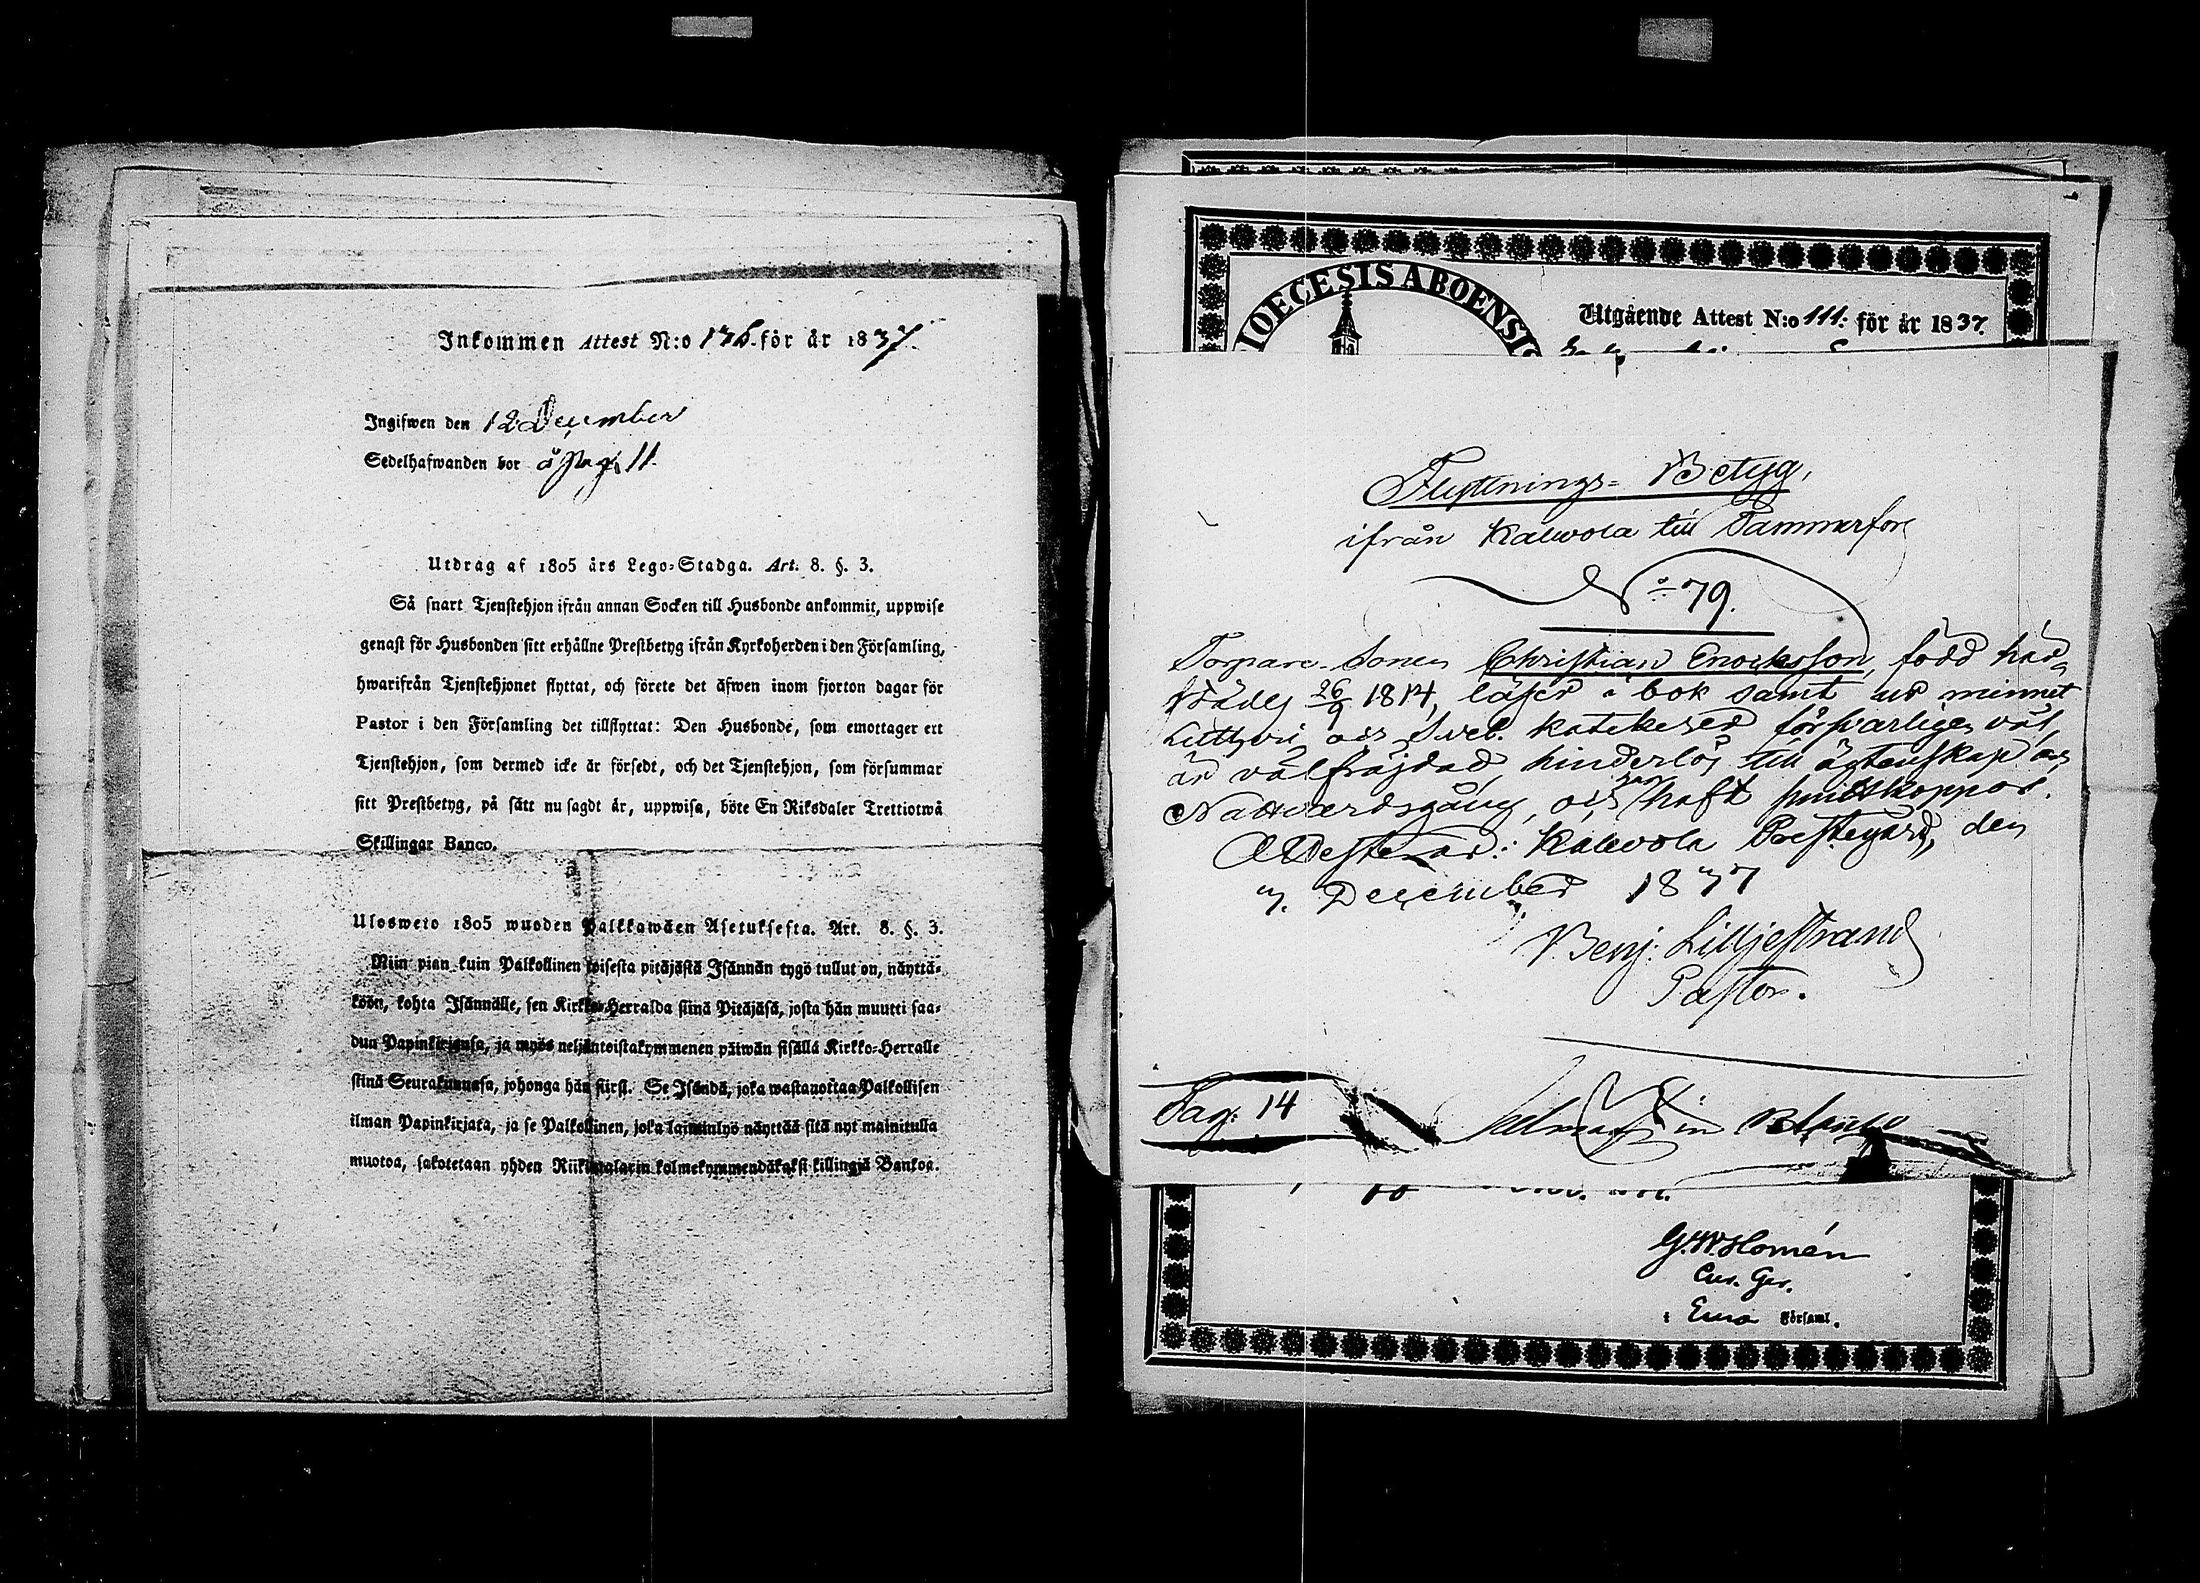 Inkommen Attest N:o 176. för år 1837.
Ingifwen den 12 December
Sedelhafwanden bor å pag. 11.
Utdrag af 1805 års Lego-Stadga. Art. 8. §. 3.
Så snart Tjenstehjon ifrån annan Socken till Husbonde ankommit, uppwise
genast för Husbonden sitt erhållne Prestbetyg ifrån Kyrkoherden i den Församling,
hwarifrån Tjenstehjonet flyttat, och förete det äfwen inom fjorton dagar för
Pastor i den Församling det tillflyttat: Den Husbonde, som emottager ett
Tjenstehjon, som dermed icke är försedt, och det Tjenstehjon, som försummar
sitt Prestbetyg, på sätt nu sagdt är, uppwisa, böte En Riksdaler Trettiotwå
Skillingar Banco.
Ulosweto 1805 wuoden Palkkawäen Asetuksesta. Art. 8. §. 3.
Niin pian kuin Palkollinen toisesta pitäjästä Isännän tygö tullut on, näyttä-
köön, kohta Isännälle, sen Kirkko-Herralda siinä Pitäjäsä, josta hän muutti saa-
dun Papinkirjansa, ja myös neljäntoistakymmenen päiwän sisällä Kirkko-Herralle
siinä Seurakunnasa, johonga hän siirsi. Se Isändä, joka wastanottaa Palkollisen
ilman Papinkirjata, ja se Palkollinen, joka laiminlyö näyttää sitä nyt mainitulla
muotoa, sakotetaan yhden Riikintalarin kolmekymmendäkaksi killingiä Bankoa.
DIOECESIS ABOENSIS
Utgående Attest N:o 111. för år 1837.
Flyttnings-Betyg,
ifrån Kalwola till Tammerfors
N:o 79.
Torpare Sonen Christian Enocksson, född här-
städes 26/9 1814, läser i bok samt ur minnet
Luth. och Sveb. katekeser försvarligen väl,
är välfräjdad, hinderlös till ägtenskap och
Nattvardsgång, och har haft smittkoppor.
Attesterar: Kalwola Prestegård, den
7. December 1837
Benj: Liljestrand
Pastor.
Pag: 14
Salmas in Blanco
G. W. Homén
Cur. Ger.
i Eura Församl.